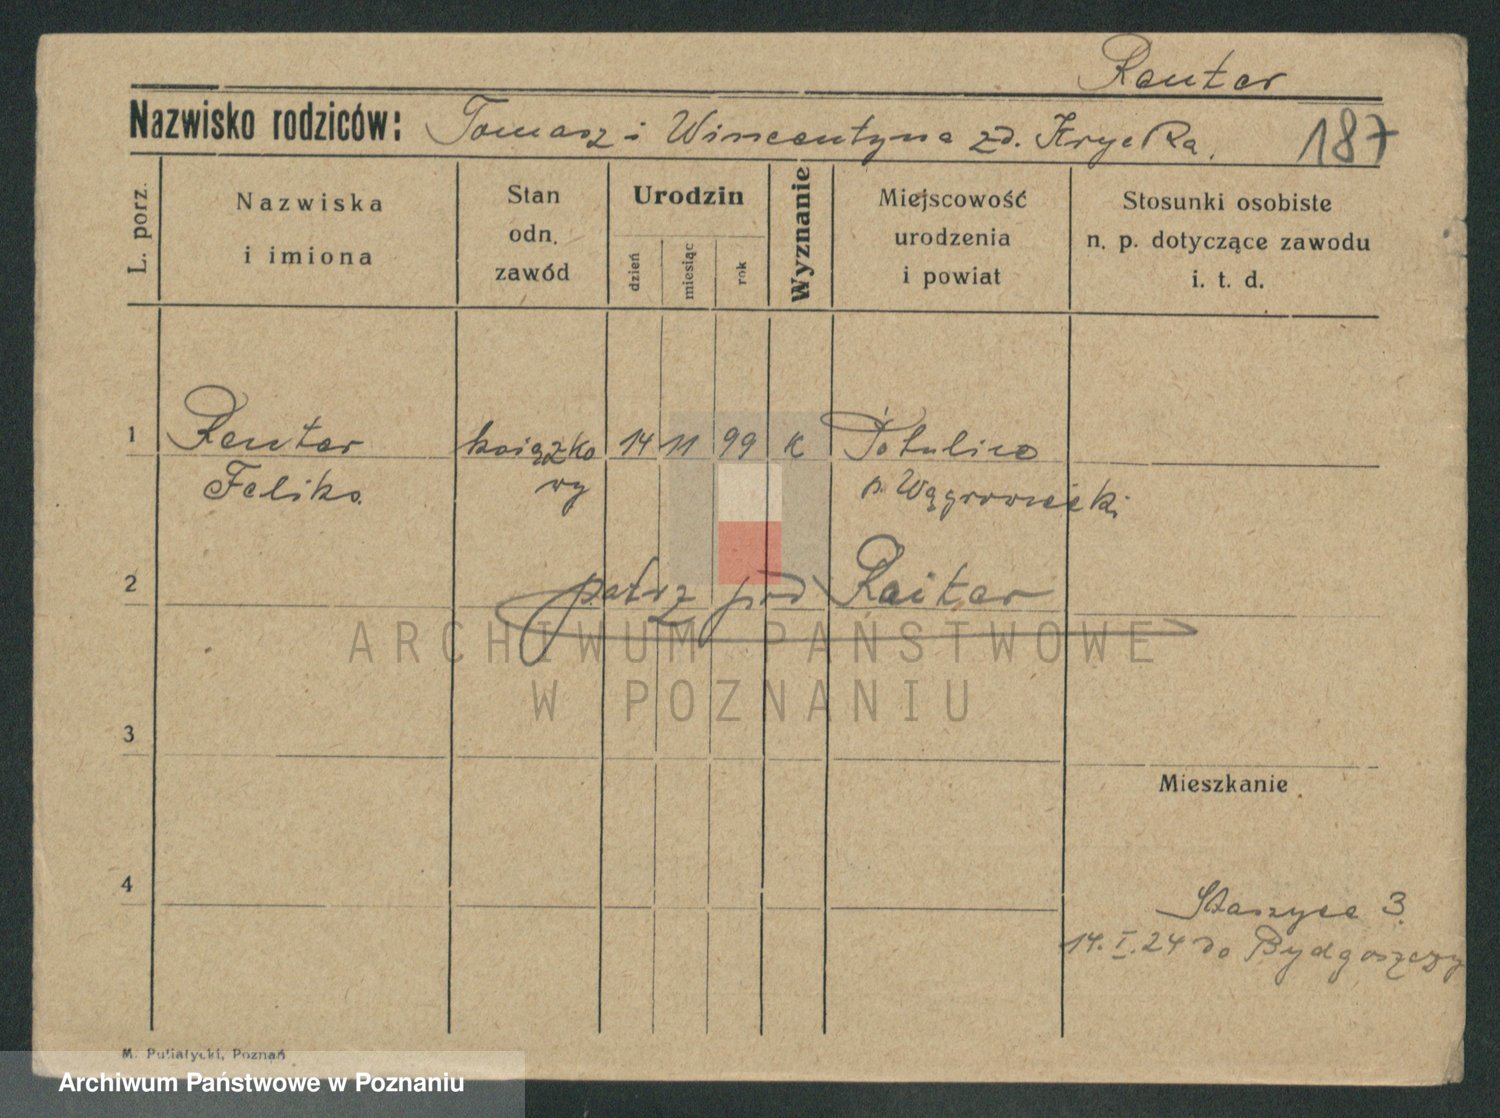 Reuter
Nazwisko rodziców: Tomasz i Wincentyna zd. Krycka. 187
L. porz.
Nazwiska
i imiona
Stan
odn.
zawód
Urodzin
dzień
miesiąc
rok
Wyznanie
Miejscowość
urodzenia
i powiat
Stosunki osobiste
n. p. dotyczące zawodu
i. t. d.
1 Reuter książko 14 11 99 k Potulice
Feliks wy p. Wągrowiecki
2 patrz pod Reiter
ARCHIWUM PAŃSTWOWE
W POZNANIU
3
Mieszkanie
4
Staszyca 3.
14.I.24 do Bydgoszczy
M. Putiatycki, Poznań
Archiwum Państwowe w Poznaniu